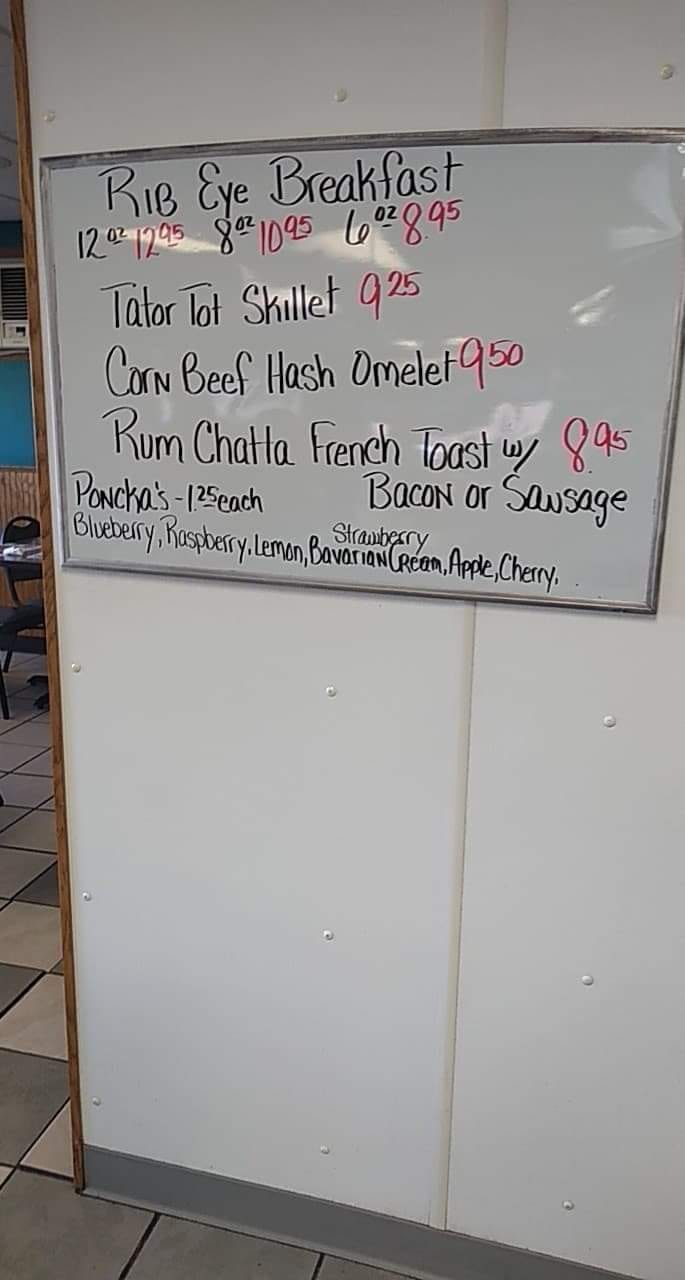 Rib Eye Breakfast
12 oz 12.95 8 oz 10.95 6 oz 8.95
Tator Tot Skillet 9.25
Corn Beef Hash Omelet 9.50
Rum Chatta French Toast w/ 8.95
Bacon or Sausage
Poncka's - 1.25 each
Strawberry
Blueberry, Raspberry, Lemon, Bavarian Cream, Apple, Cherry,